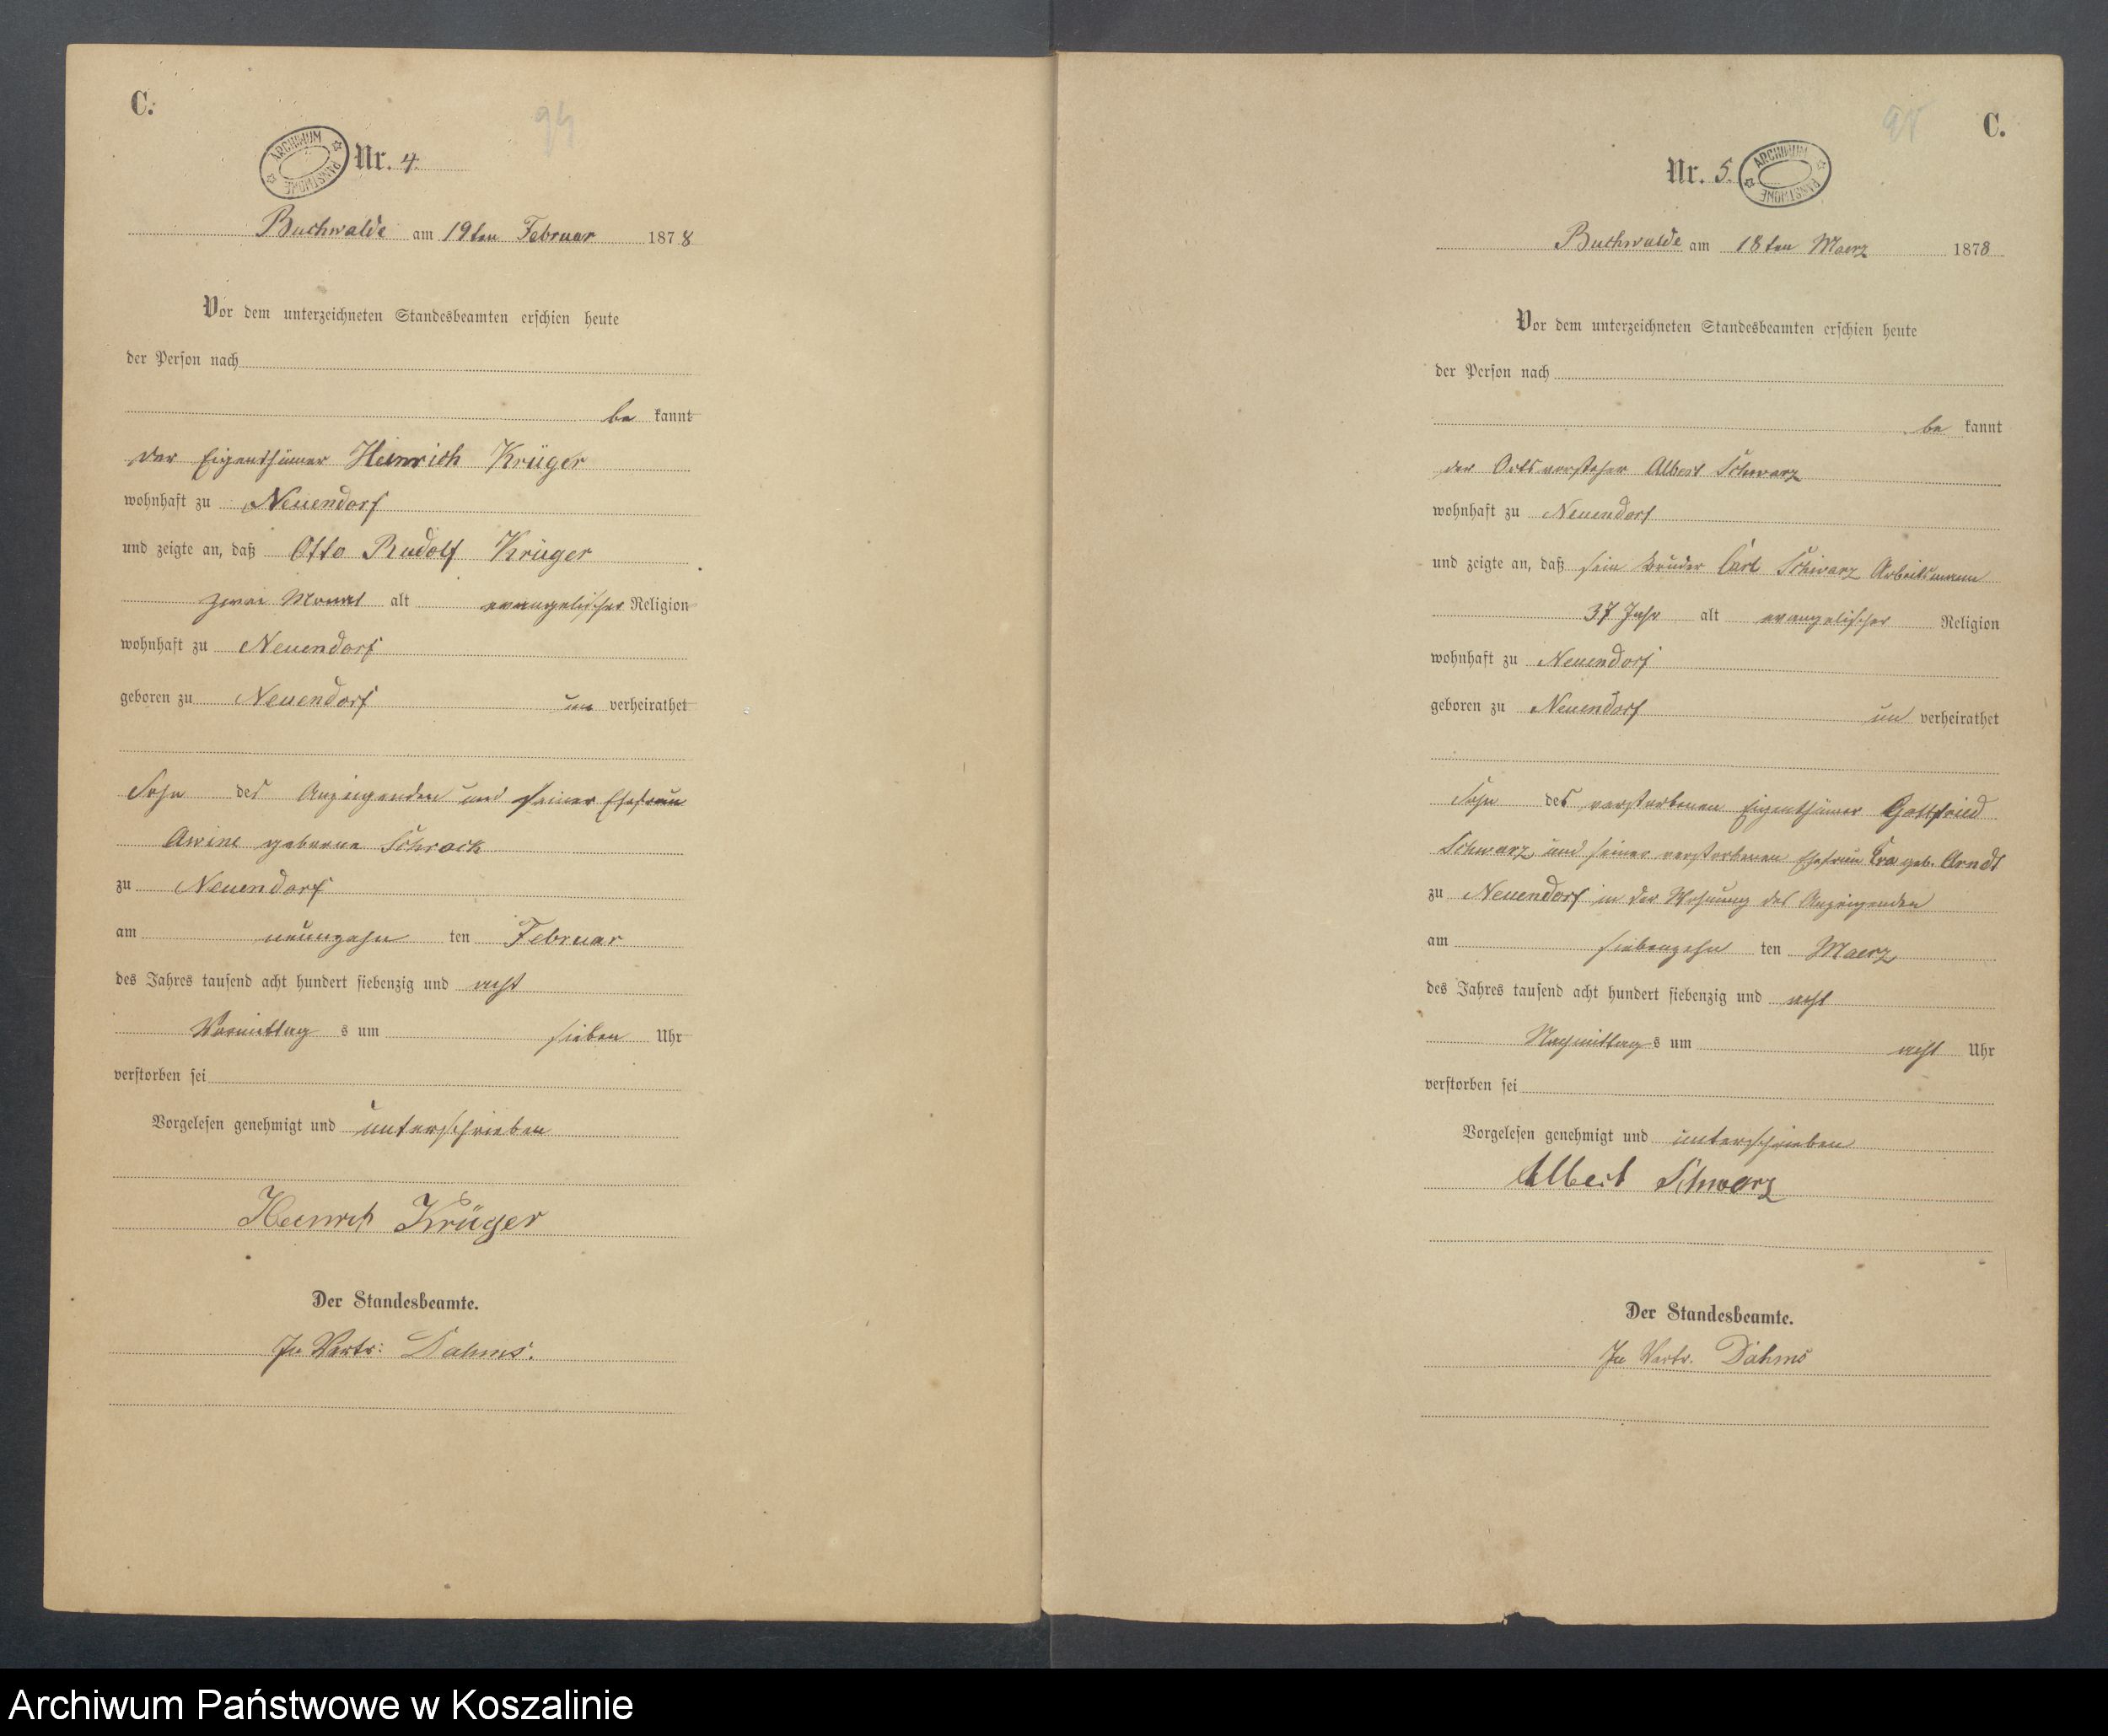 C.
94
ARCHIWUM PAŃSTWOWE
Nr. 4.
Buchwalde am 19ten Februar 1878
Vor dem unterzeichneten Standesbeamten erschien heute
der Person nach
be kannt
der Eigenthümer Heinrich Krüger
wohnhaft zu Neuendorf
und zeigte an, daß Otto Rudolf Krüger
zwei Monat alt evangelischer Religion
wohnhaft zu Neuendorf
geboren zu Neuendorf un verheirathet
Sohn des Anzeigenden und seiner Ehefrau
geborene Schrock
zu Neuendorf
am neunzehn ten Februar
des Jahres tausend acht hundert siebenzig und acht
Vormittag s um sieben Uhr
verstorben sei
Vorgelesen genehmigt und unterschrieben
Heinrich Krüger
Der Standesbeamte.
In Vertr: Dahms.
95
C.
Nr. 5.
ARCHIWUM PAŃSTWOWE
Buchwalde am 18ten Maerz 1878
Vor dem unterzeichneten Standesbeamten erschien heute
der Person nach
be kannt
der Ortsvorsteher Albert Schwarz
wohnhaft zu Neuendorf
und zeigte an, daß sein Bruder Carl Schwarz Arbeitsmann
37 Jahr alt evangelischer Religion
wohnhaft zu Neuendorf
geboren zu Neuendorf un verheirathet
Sohn des verstorbenen Eigenthümer Gottfried
Schwarz und seiner verstorbenen Ehefrau geb. Arndt
zu Neuendorf in der Wohnung des Anzeigenden
am siebenzehn ten Maerz
des Jahres tausend acht hundert siebenzig und acht
Nachmittag s um acht Uhr
verstorben sei
Vorgelesen genehmigt und unterschrieben
Albert Schwarz
Der Standesbeamte.
In Vertr. Dahms
Archiwum Państwowe w Koszalinie